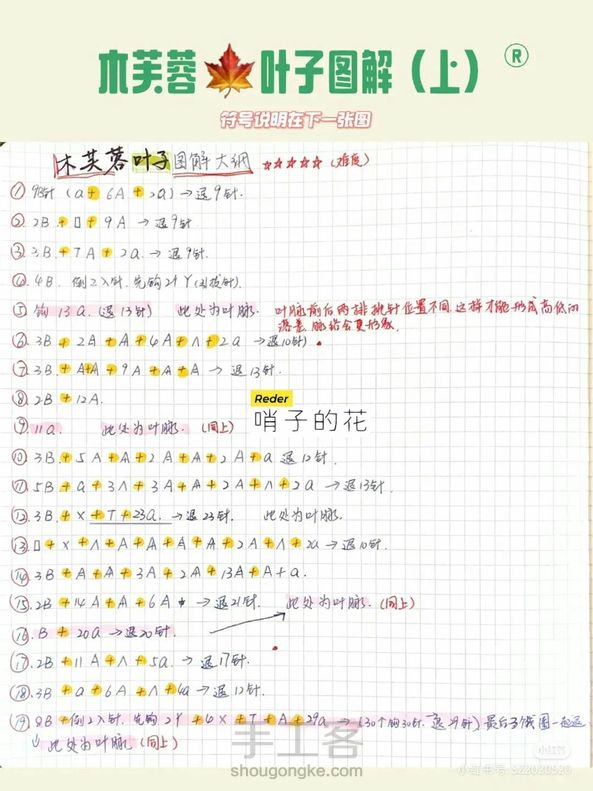 木芙蓉🍁叶子图解（上）®
符号说明在下一张图
木芙蓉叶子图解大纲 ☆☆☆☆☆（难度）
① 9针（a + 6A + 2a）→退9针.
② 2B + 口 + 9A → 退9针.
③ 3B + 7A + 2a → 退9针.
④ 4B. 倒2入针. 先钩2个Y（引拔针）.
⑤ 钩13a（退13针） 此处为叶脉. 叶脉前后两排挑针位置不同.这样才能形成高低的
落差.脉络会更形象.
⑥ 3B + 2A + A + 4A + Λ + 2a →退10针）
⑦ 3B + A+A + 9A + A + A → 退13针.
⑧ 2B + 12A.
Reder
哨子的花
⑨ 11a. 此处为叶脉.（同上）
⑩ 3B + 5A + A + 2A + A + A + 2A + a 退12针.
⑪ 5B + a + 3Λ + 3A + A + 2A + Λ + 2a →退13针
⑫ 3B + × + T + 23a. →退23针. 此处为叶脉.
⑬ 口 + × + Λ + A + A + A + A + 2A + Λ + 2a →退10针.
⑭ 3B + A + A + 3A + 2A + 13A + A + a.
⑮ 2B + 14A + A + 6A →退21针. 此处为叶脉.（同上）
⑯ B + 20a →退20针.
⑰ 2B + 11A + Λ + 5a. → 退17针.
⑱ 3B + a + 6A + Λ + 4a → 退12针.
⑲ 8B + 倒2入针. 先钩2Y + 6× + T + A + 29a → (30个钩30针. 退29针) 最后
↓ 此处为叶脉（同上）
手工客
shougongke.com
小红书
小红书号: